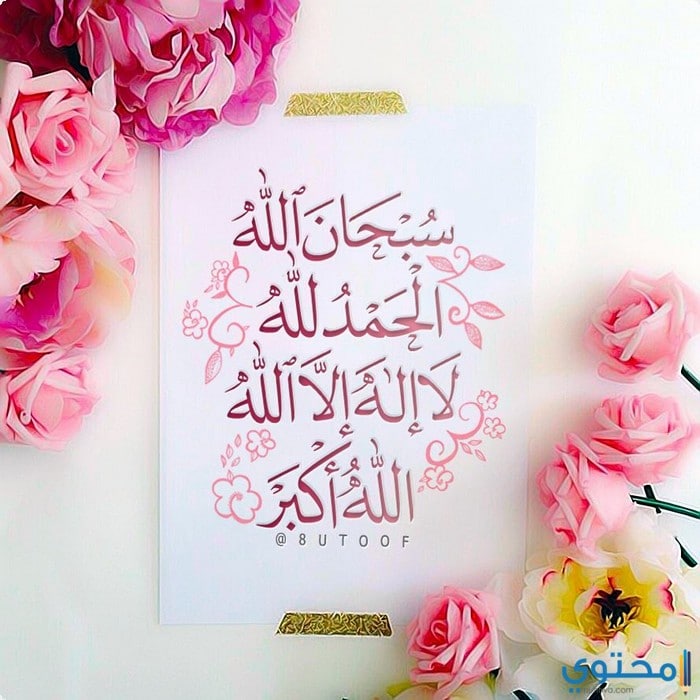 سُبْحَانَ ٱللَّهُ
الْحَمْدُ للَّهُ
لَا إلٰهَ إلَّا ٱللَّهُ
اللَّهُ أَكْبَرَ
@8UTOOF
محتوى